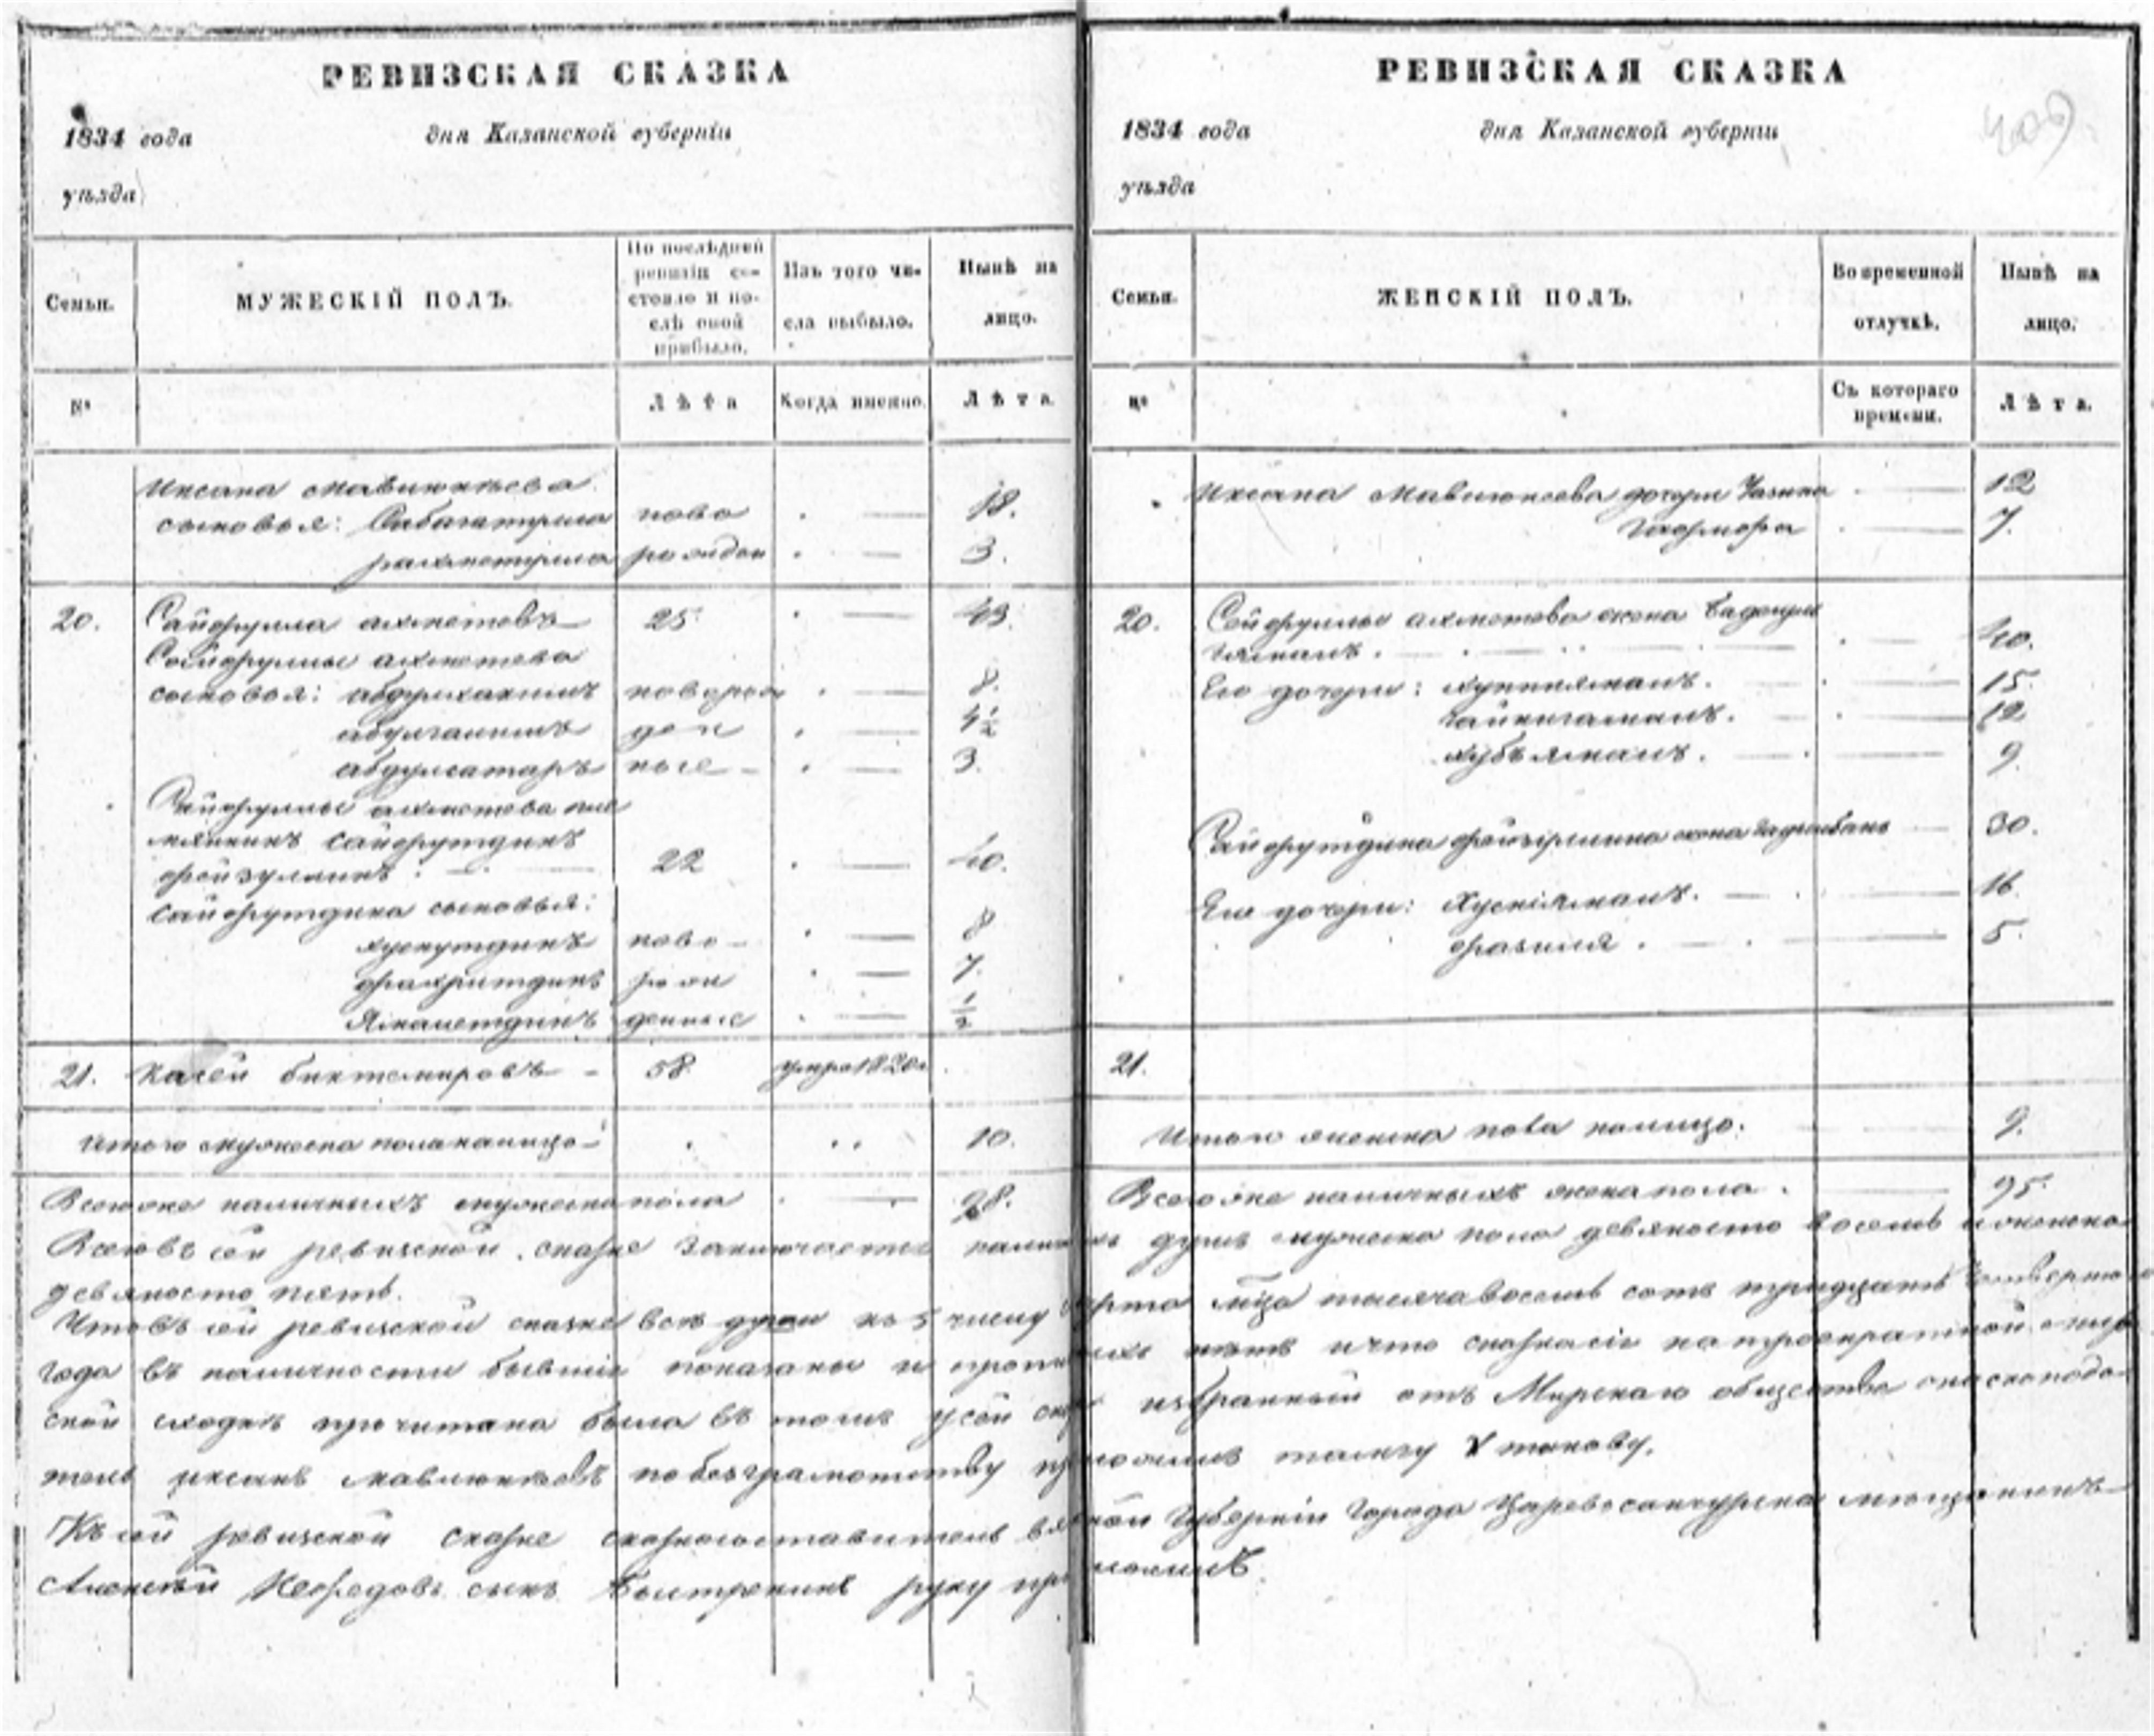 РЕВИЗСКАЯ СКАЗКА
1834 года дня Казанской губерніи
уѣзда
Семьи.
МУЖЕСКІЙ ПОЛЪ.
По послѣдней ревизіи состояло и послѣ оной прибыло.
Изъ того числа выбыло.
Нынѣ на лицо.
№
Лѣта
Когда именно.
Лѣта.
Иксана Мавлюкѣева
сыновья: ново 18.
рахметулла рожден 3.
20. Сайфулла ахметовъ 25 43.
Сайфуллы ахметева
сыновья: абдулхакимъ новорож 8.
ден 4½
абдулсатаръ ные 3.
Сайфуллы ахметева пле
мянникъ сайфутдинъ
фейзуллинъ 22 40.
сайфутдина сыновья:
хуснутдинъ ново 8
фахритдинъ рож 7.
Ямалетдинъ денные ½
21. биктемировъ 58. умре 1820
итого мужеска пола налицо 10.
Всегоже наличныхъ мужеска пола 98.
РЕВИЗСКАЯ СКАЗКА
1834 года дня Казанской губерніи
409
уѣзда
Семьи.
ЖЕНСКІЙ ПОЛЪ.
Во временной отлучкѣ.
Нынѣ на лицо.
Съ котораго времени.
Лѣта.
Иксана Мавлюкеева дочери 12
7.
20. Сейфуллы ахметова жена
40.
Его дочери: 15.
12
хубъямалъ. 9.
Сайфутдина фейзуллина жена 30.
Его дочери: Хусніямалъ. 16.
фазиля. 5.
21.
Итого женска пола налицо. 9.
Всегоже наличныхъ женска пола. 95.
Всего въ сей ревизской сказке заключается наличныхъ душъ мужеска пола девяносто восемь и женска
девяносто пять.
Что въ сей ревизской сказке все души къ числу марта мѣца тысяча восемь сотъ тридцать четвертаго
года въ наличности бывшія показаны и нетъ и что сказка сія на троекратной мир
ской сходке прочитана была въ томъ избранный отъ Мирскаго общества
иксанъ Мавлюкеевъ по безграмотству приложилъ тамгу такову.
Къ сей ревизской сказке сказкосоставитель вятской Губерніи города Царевосанчурска мещанинъ
Алексѣй сынъ руку приложилъ